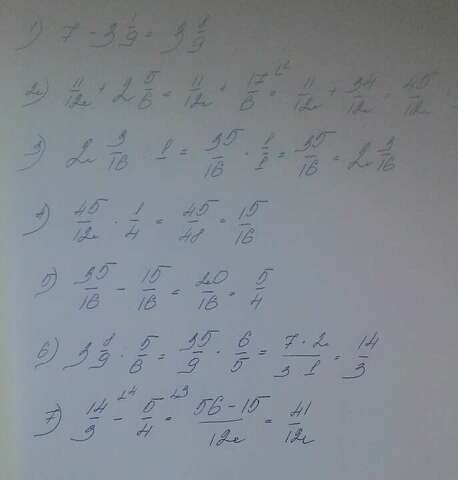 1) 7 - 3 1/9 = 3 8/9
2) 11/12 + 2 5/6 = 11/12 + 17/6 = 11/12 + 34/12 = 45/12
3) 2 3/16 · 1 = 35/16 · 1/1 = 35/16 = 2 3/16
4) 45/12 · 1/4 = 45/48 = 15/16
5) 35/16 - 15/16 = 20/16 = 5/4
6) 3 8/9 : 5/6 = 35/9 · 6/5 = 7·2/3 1 = 14/3
7) 14/3 - 5/4 = 56-15/12 = 41/12